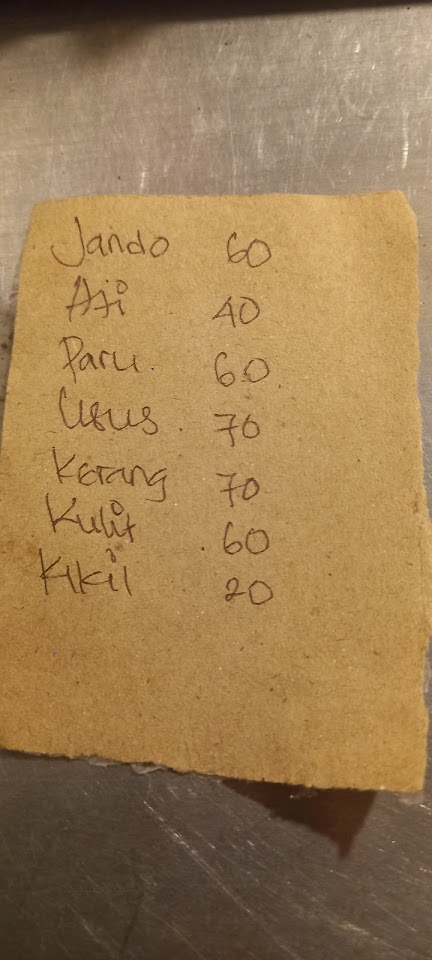 Jando 60
Ati 40
Paru. 60.
Usus. 70
Kerang 70
Kulit .60
Kikil 20